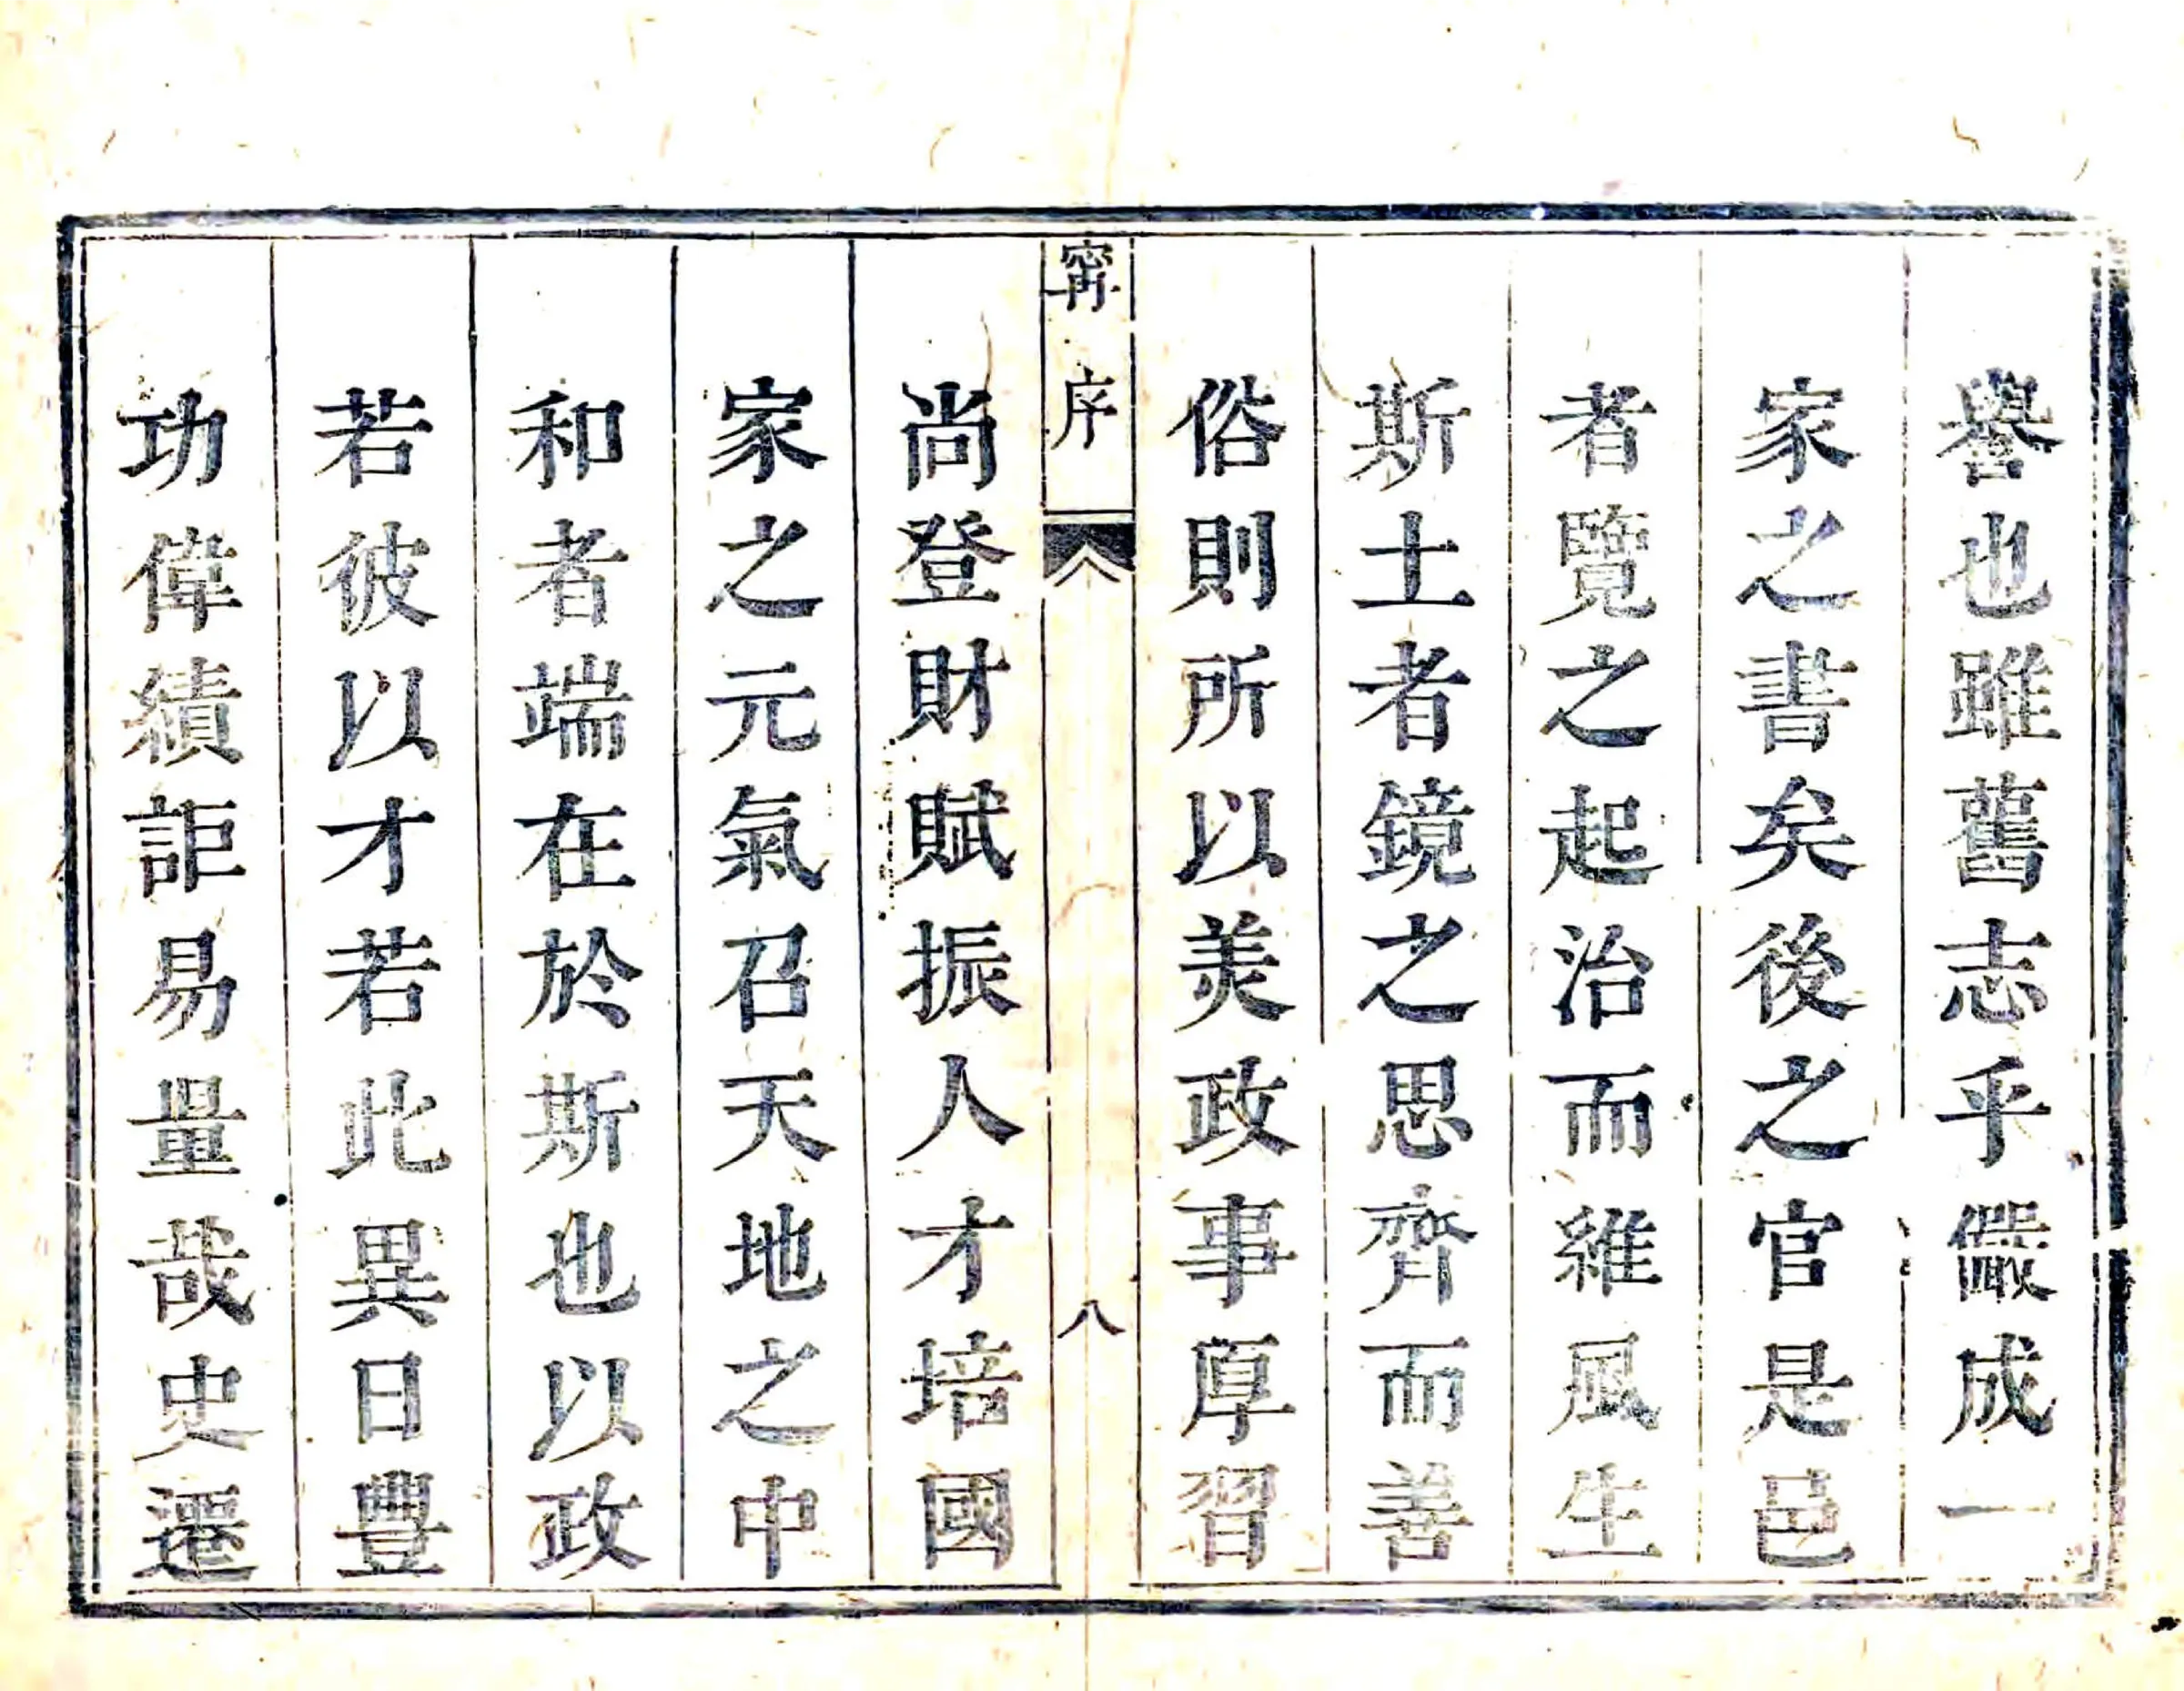 譽也雖舊志乎儼成一
家之書矣後之官是邑
者覽之起治而維風生
斯土者鏡之思齊而善
俗則所以美政事厚習
甯序
八
尚登財賦振人才培國
家之元氣召天地之中
和者端在於斯也以政
若彼以才若此異日豐
功偉績詎易量哉史遷